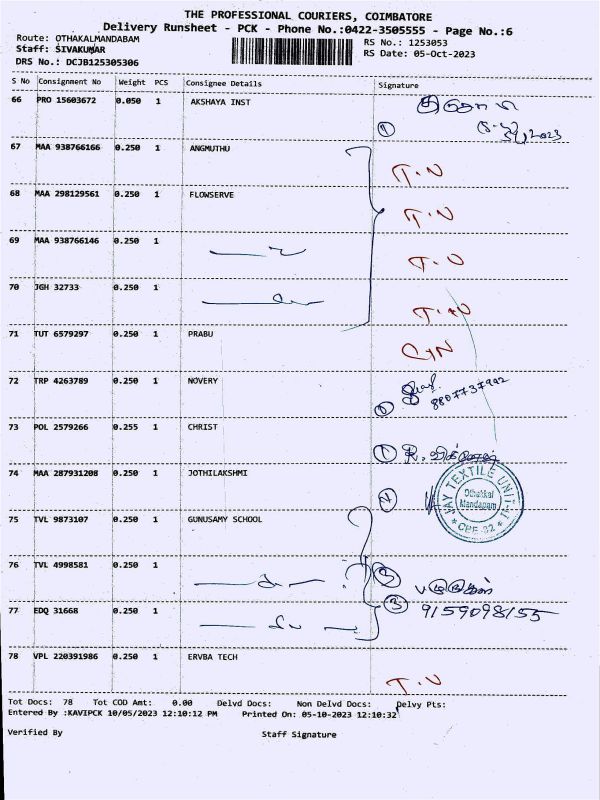 THE PROFESSIONAL COURIERS, COIMBATORE
Delivery Runsheet - PCK - Phone No.:0422-3505555 - Page No.:6
Route: OTHAKALMANDABAM
RS No.: 1253053
Staff: SIVAKUMAR
RS Date: 05-Oct-2023
DRS No.: DCJB125305306
S No Consignment No Weight PCS Consignee Details Signature
66 PRO 15603672 0.050 1 AKSHAYA INST
1
67 MAA 938766166 0.250 1 ANGMUTHU
T.N
68 MAA 298129561 0.250 1 FLOWSERVE
T.N
69 MAA 938766146 0.250 1
T.N
70 JGH 32733 0.250 1
T.N
71 TUT 6579297 0.250 1 PRABU
C/N
72 TRP 4263789 0.250 1 NOVERY
8807737992
73 POL 2579266 0.255 1 CHRIST
1 R.
74 MAA 287931208 0.250 1 JOTHILAKSHMI
JAY TEXTILE UNIT-II
Othakkal
Mandapam
* CBE-32 *
75 TVL 9873107 0.250 1 GUNUSAMY SCHOOL
76 TVL 4998581 0.250 1
3
77 EDQ 31668 0.250 1
3 9159098155
78 VPL 220391986 0.250 1 ERVBA TECH
T.N
Tot Docs: 78 Tot COD Amt: 0.00 Delvd Docs: Non Delvd Docs: Delvy Pts:
Entered By :KAVIPCK 10/05/2023 12:10:12 PM Printed On: 05-10-2023 12:10:32
Verified By Staff Signature